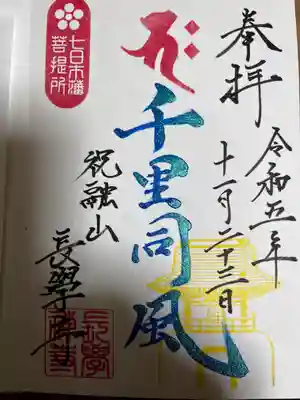 奉拝
令和五年
十一月二十三日
千里同風
祝融山
長學寺
七日市藩
菩提所